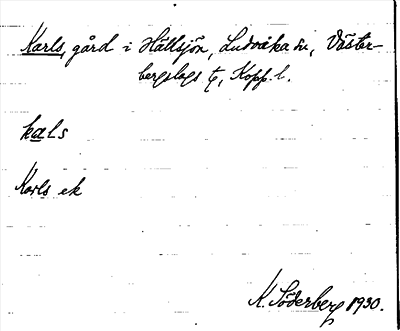 Karls, gård i Hällsjön, Ludvika sn, Väster-
bergslags tg, Kopp. l.
kals
Karls ek
K. Söderberg 1930.